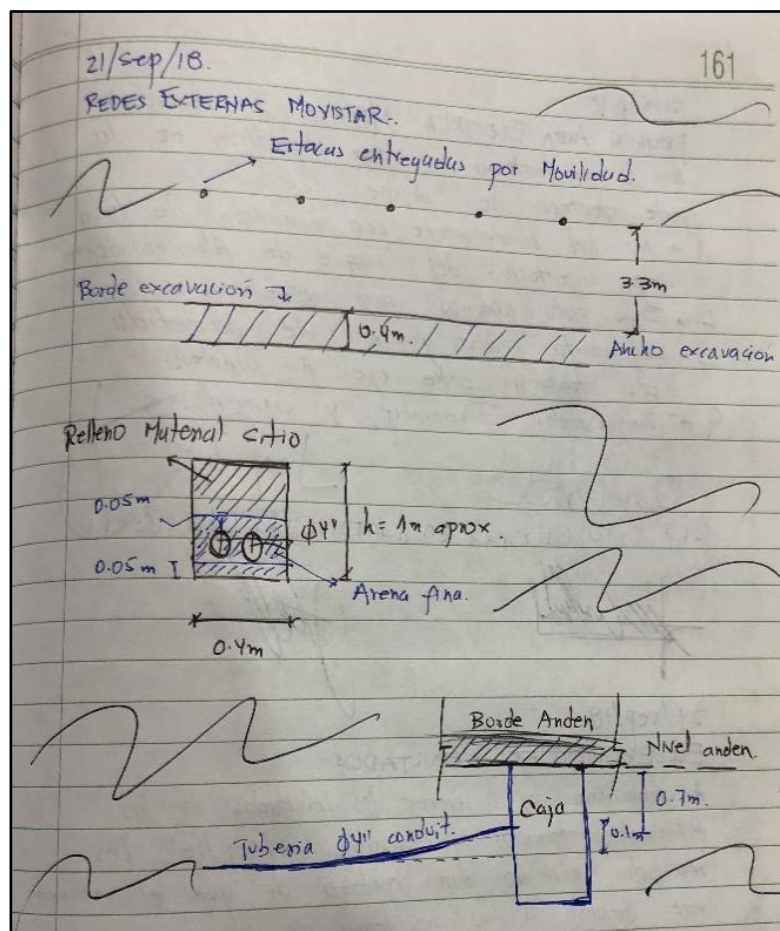 161
21/Sep/18.
REDES EXTERNAS MOVISTAR.
Estacas entregadas por Movilidad.
3.3m
Borde excavación
0.4m.
Ancho excavación
Relleno Material Sitio
0.05m
φ4"
h = 1m aprox.
0.05m
Arena fina.
0.4m
Borde Anden
Nivel anden.
Caja
0.7m.
0.1m
Tuberia φ4" conduit.